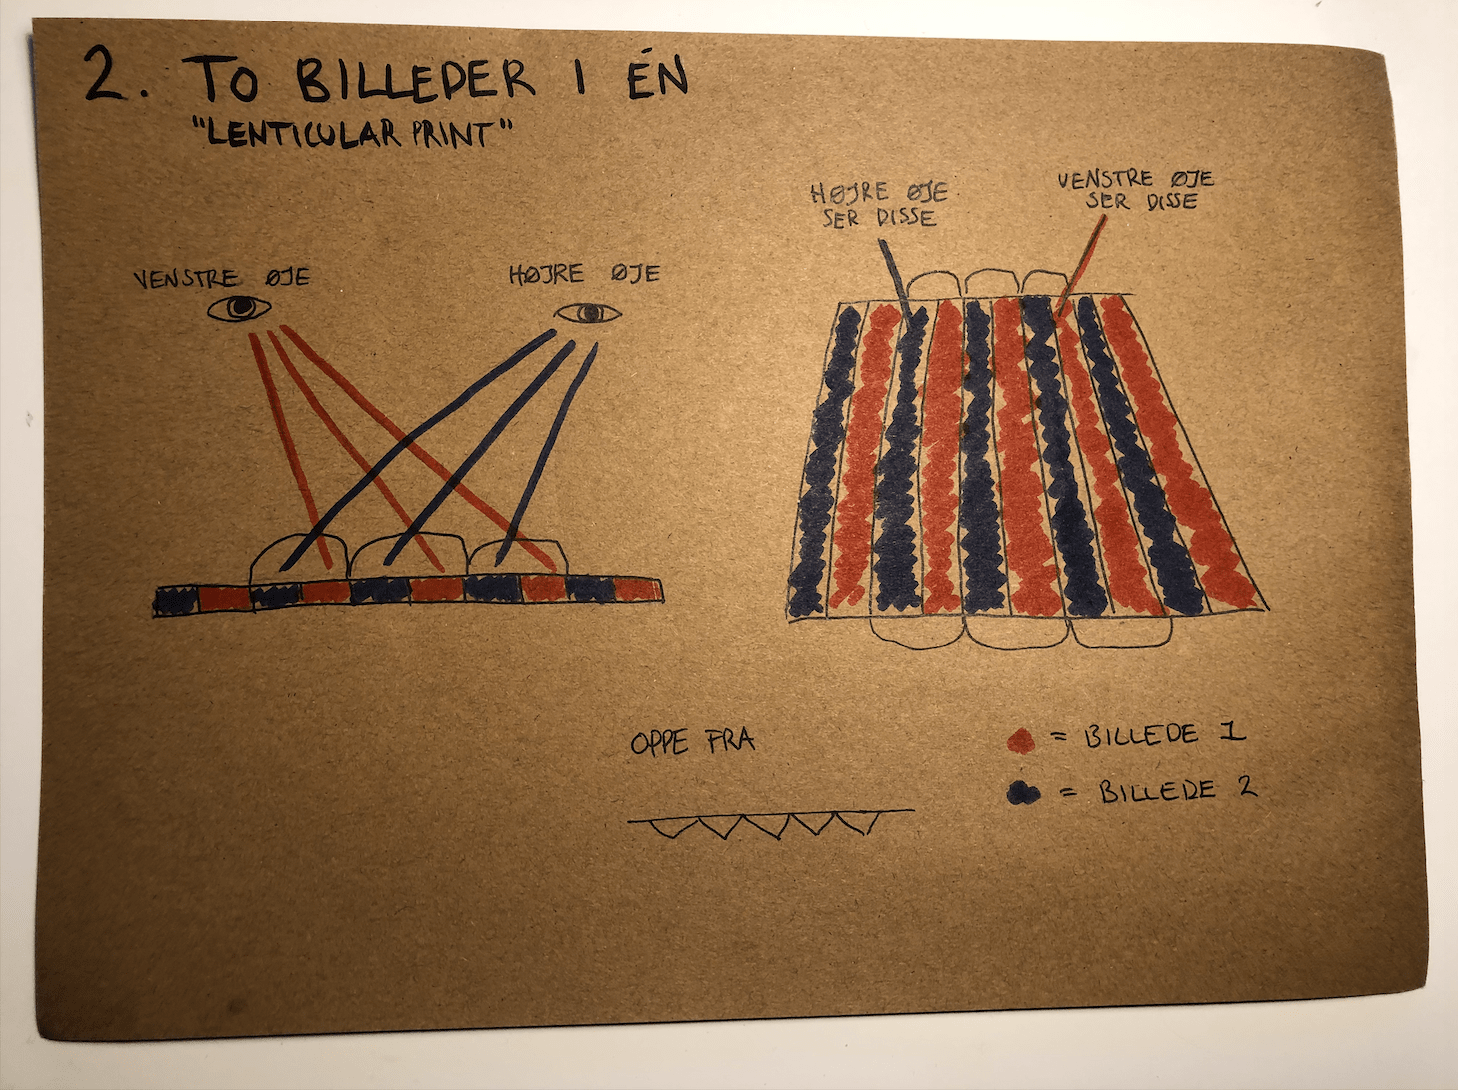 2. TO BILLEDER I ÉN
"LENTICULAR PRINT"
VENSTRE ØJE
HØJRE ØJE
HØJRE ØJE
SER DISSE
VENSTRE ØJE
SER DISSE
OPPE FRA
= BILLEDE 1
= BILLEDE 2